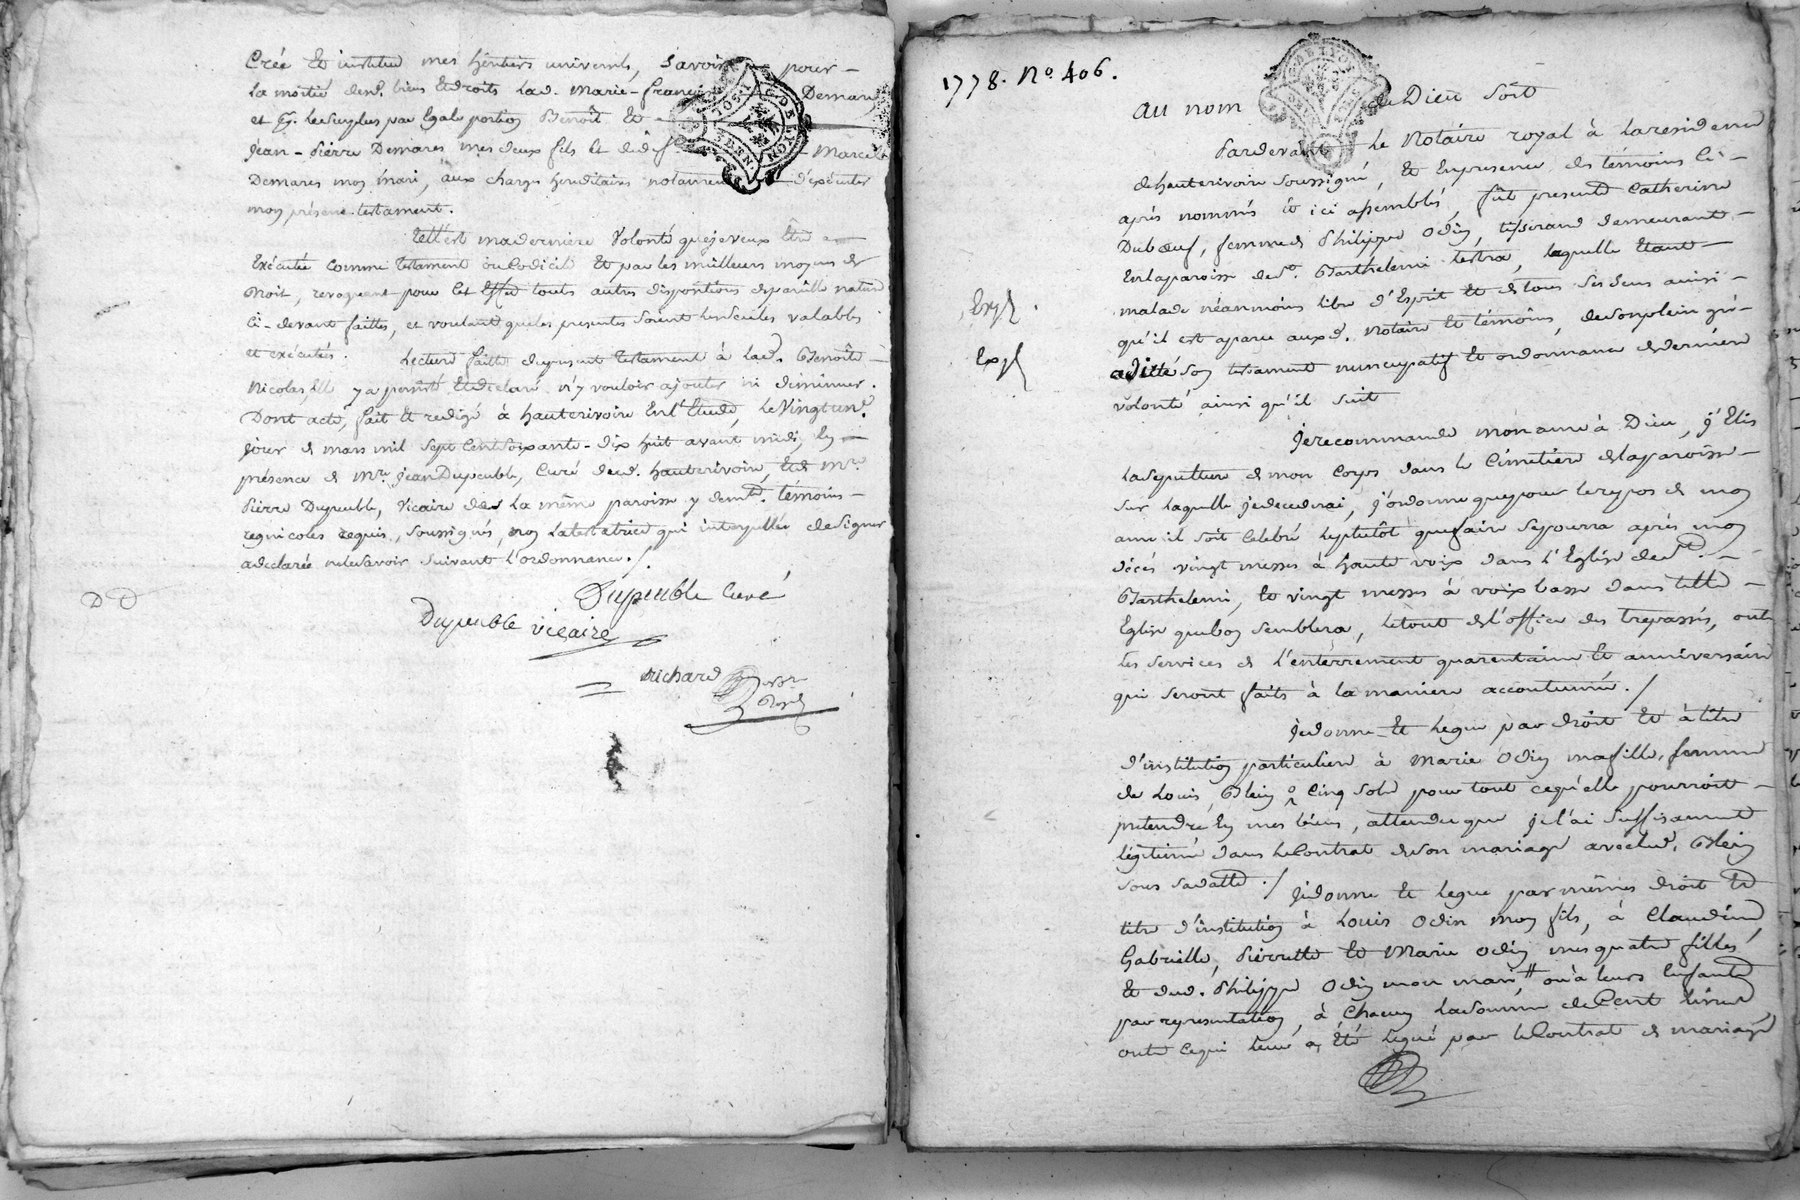 Créé et institué mes héritiers universels, savoir pour
la moitié de mes biens et droits lad. Marie-Françoise Demare
et pr. le surplus par egale portion Benoit et
Jean-Pierre Demares mes deux fils et dud. Marcel
Demares mon mari, aux charges hereditaires notamment d'exécuter
mon présent testament.
Telle est ma derniere volonté que je veux être
exécutée comme testament ou codicil et par les meilleurs moyens de
droit, revoquant pour cet effet toutes autres dispositions de pareille nature
ci-devant faittes, et voulant que les presentes soient les seules valables
et exécutés. Lecture faitte du présent testament à lad. Benoite
Nicolas, elle y a persisté et declaré n'y vouloir ajouter ni diminuer.
Dont acte, fait et redigé à hauterivoire en l'Etude, le vingt une
jour de mars mil sept cent soixante-dix huit avant midi, en
présence de Mre. Jean Dupeuble, Curé dud. hauterivoire, et de Mre.
Pierre Dupeuble, Vicaire de la même paroisse y demt. témoins
regnicoles requis, soussignés, non la testatrice qui interpellée de signer
a declaré ne le savoir suivant l'ordonnance./.
D D
Dupeuble Curé
Dupeuble vicaire
Richard
Nore
Royal
1778. No. 406.
Au nom de Dieu soit
Pardevant le Notaire royal à la residence
de hauterivoire soussigné, et en presence des témoins ci-
après nommés et ici assemblés, fut presente Catherine
Duboeuf, femme de Philippe Odin, tisserand demeurant
en la paroisse de St. Barthelemi lestra, laquelle etant
malade néanmoins libre d'Esprit et de tous ses sens ainsi
qu'il est aparu auxd. Notaire et témoins, de son plein gré
a dicté son testament nuncupatif et ordonnance de derniere
volonté ainsi qu'il suit
Exp.
Exp.
Je recommande mon ame à Dieu, j'Elis
la sepulture de mon corps dans le Cimetiere de la paroisse
sur laquelle je decederai, j'ordonne que pour le repos de mon
ame il soit celebré le plutôt que faire se pourra après mon
décés vingt messes à haute voix dans l'Eglise de St.
Barthelemi, et vingt messes à voix basse dans telle
Eglise que bon semblera, le tout de l'office des trepassés, outre
les services de l'enterrement quarentaine et anniversaire
qui seront faits à la maniere accoutumée./
Je donne et legue par droit et à titre
d'institution particuliere à Marie Odin ma fille, femme
de Louis Blein cinq sols pour tout ce qu'elle pourroit
pretendre en mes biens, attendu que je l'ai suffisament
légitimé dans le Contrat de son mariage avec led. Blein
sous sa datte./ Je donne et legue par mêmes droit et
titre d'institution à Louis Odin mon fils, à Claudine,
Gabrielle, Pierrette et Marie Odin mes quatre filles,
et dud. Philippe Odin mon mari, ou à leurs Enfants
par representation, à chacun la somme de Cent livres
outre ce qui leur a été legué par le Contrat de mariage